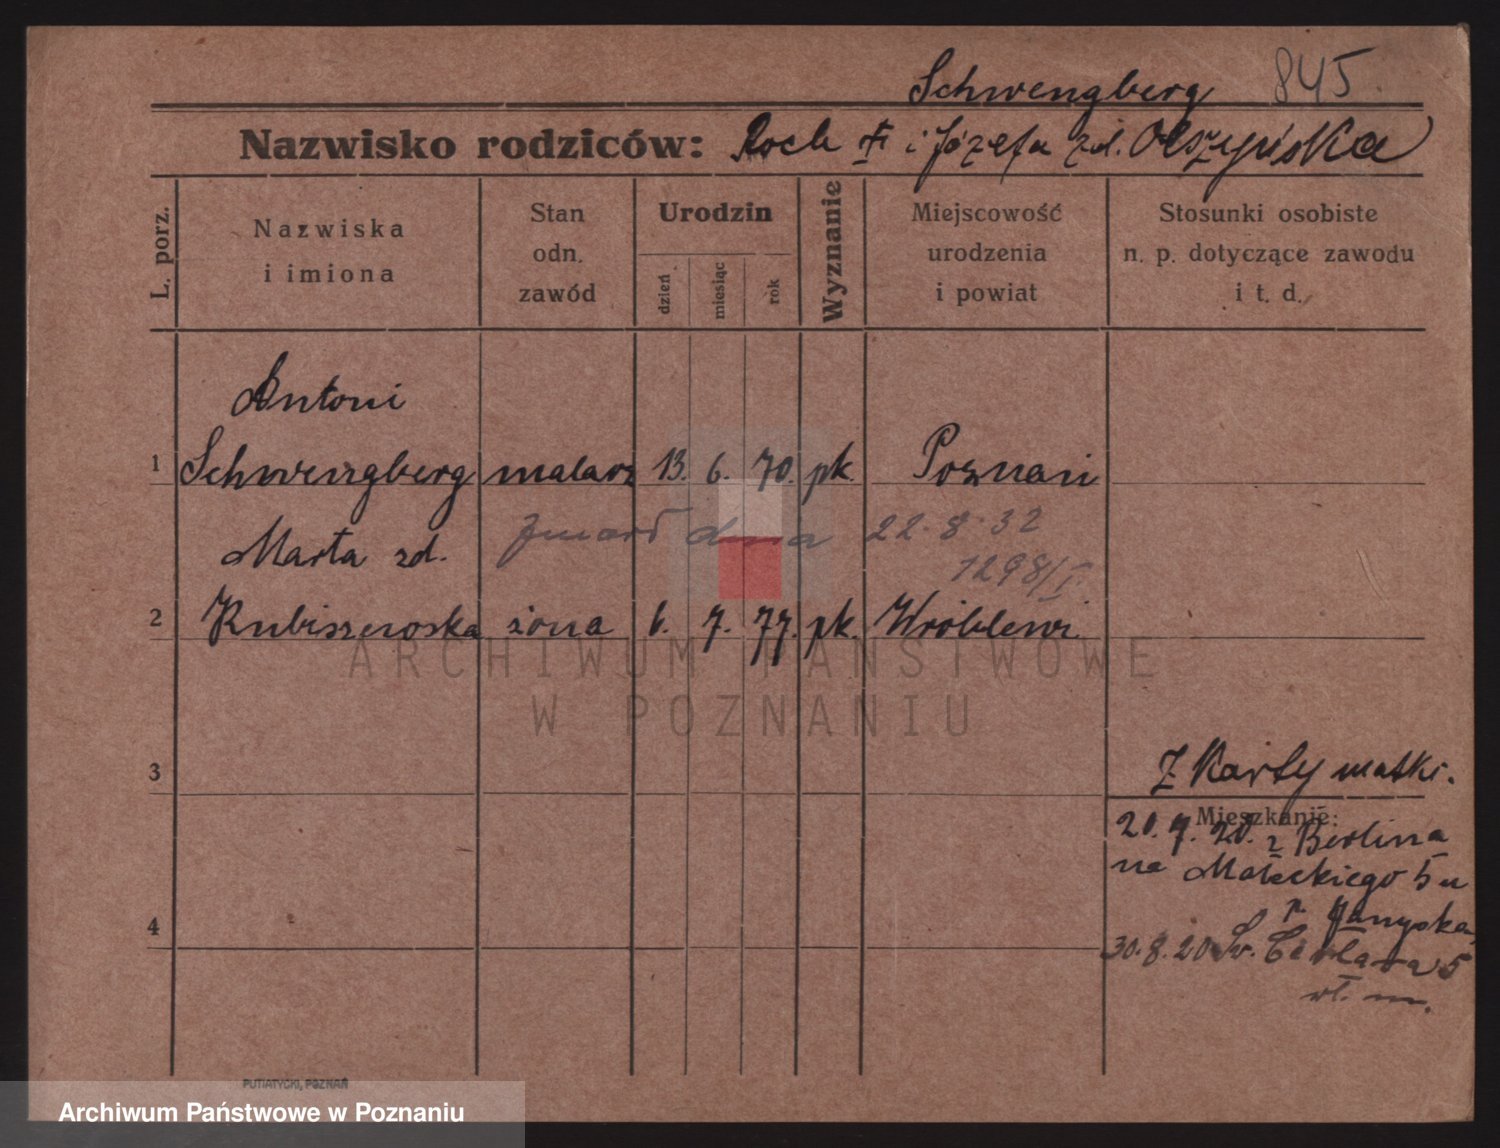 Schwengberg 845.
Nazwisko rodziców: Roch i Józefa zd. Olszyńska
L. porz.
Nazwiska
i imiona
Stan
odn.
zawód
Urodzin
dzień
miesiąc
rok
Wyznanie
Miejscowość
urodzenia
i powiat
Stosunki osobiste
n. p. dotyczące zawodu
i t. d.
Antoni
1 Schwengberg malarz 13. 6. 70. rk. Poznań
zmarł dnia 22.8.32
1298/I.
Marta zd.
2 Rubiszewska żona 6. 7. 77. rk. Wróblewi
3
Z Karty matki.
Mieszkanie:
20.7.20. z Berlina
na Małeckiego 5 u
p.
4
30.8.20 Św. Czesława 5
wł. m.
ARCHIWUM PAŃSTWOWE
W POZNANIU
PUTIATYCKI, POZNAŃ
Archiwum Państwowe w Poznaniu